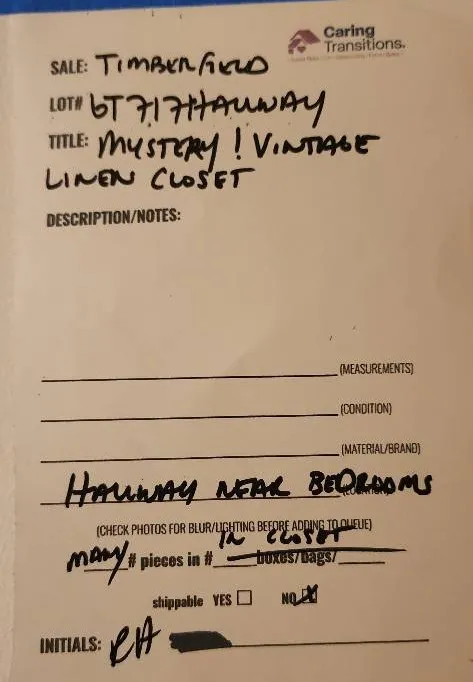 Caring
Transitions.
SALE: TIMBERFIELD
LOT# 6T717HALLWAY
TITLE: MYSTERY! VINTAGE
LINEN CLOSET
DESCRIPTION/NOTES:
(MEASUREMENTS)
(CONDITION)
(MATERIAL/BRAND)
HALLWAY NEAR BEDROOMS
(CHECK PHOTOS FOR BLUR/LIGHTING BEFORE ADDING TO QUEUE)
IN CLOSET
MANY # pieces in # boxes/bags/
shippable YES ☐ NO ☒
INITIALS: RH